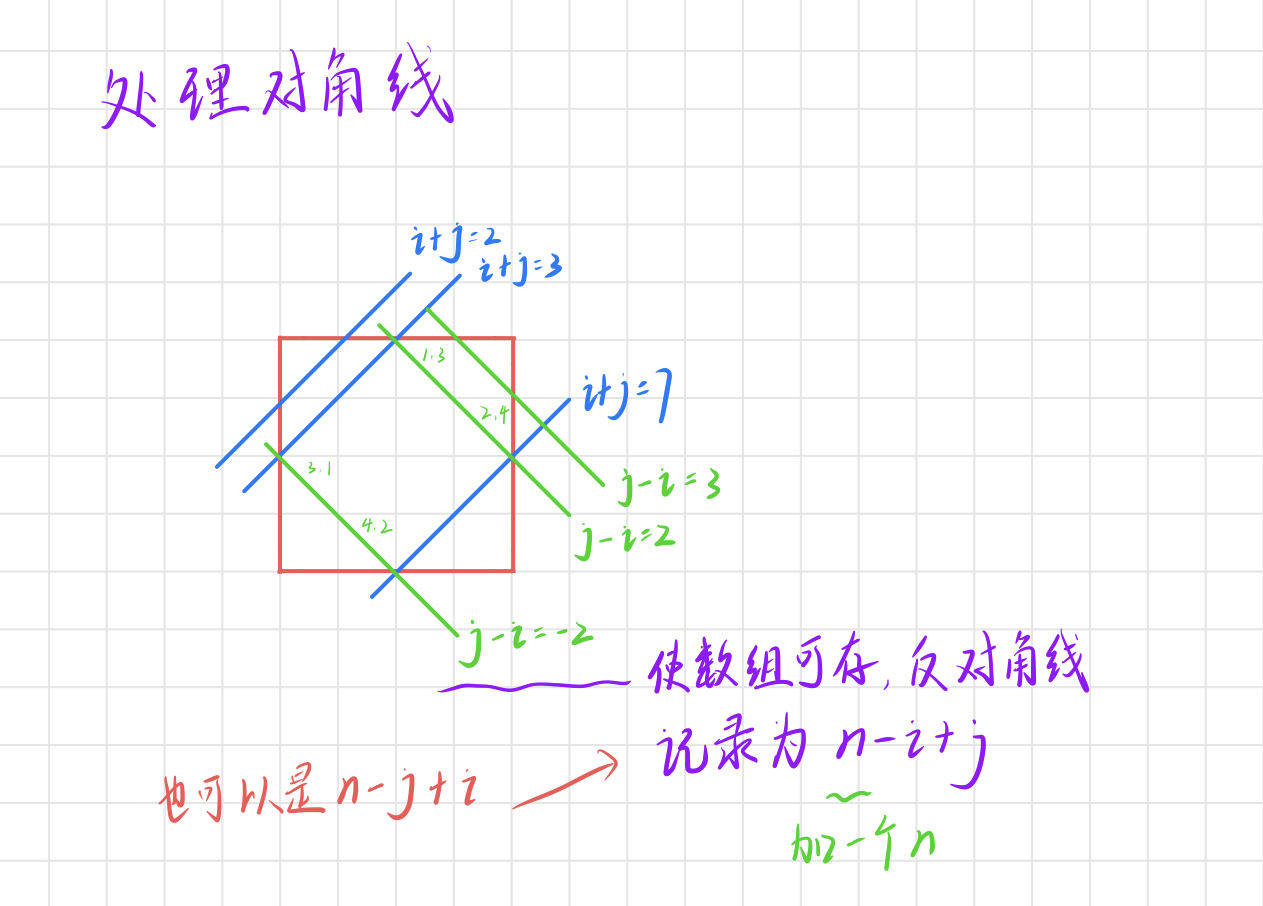 处理对角线
i+j=2
i+j=3
1.3
i+j=7
2,4
3.1
j-i=3
4.2
j-i=2
j-i=-2
使数组可存,反对角线
记录为 n-i+j
也可以是n-j+i
加一个n